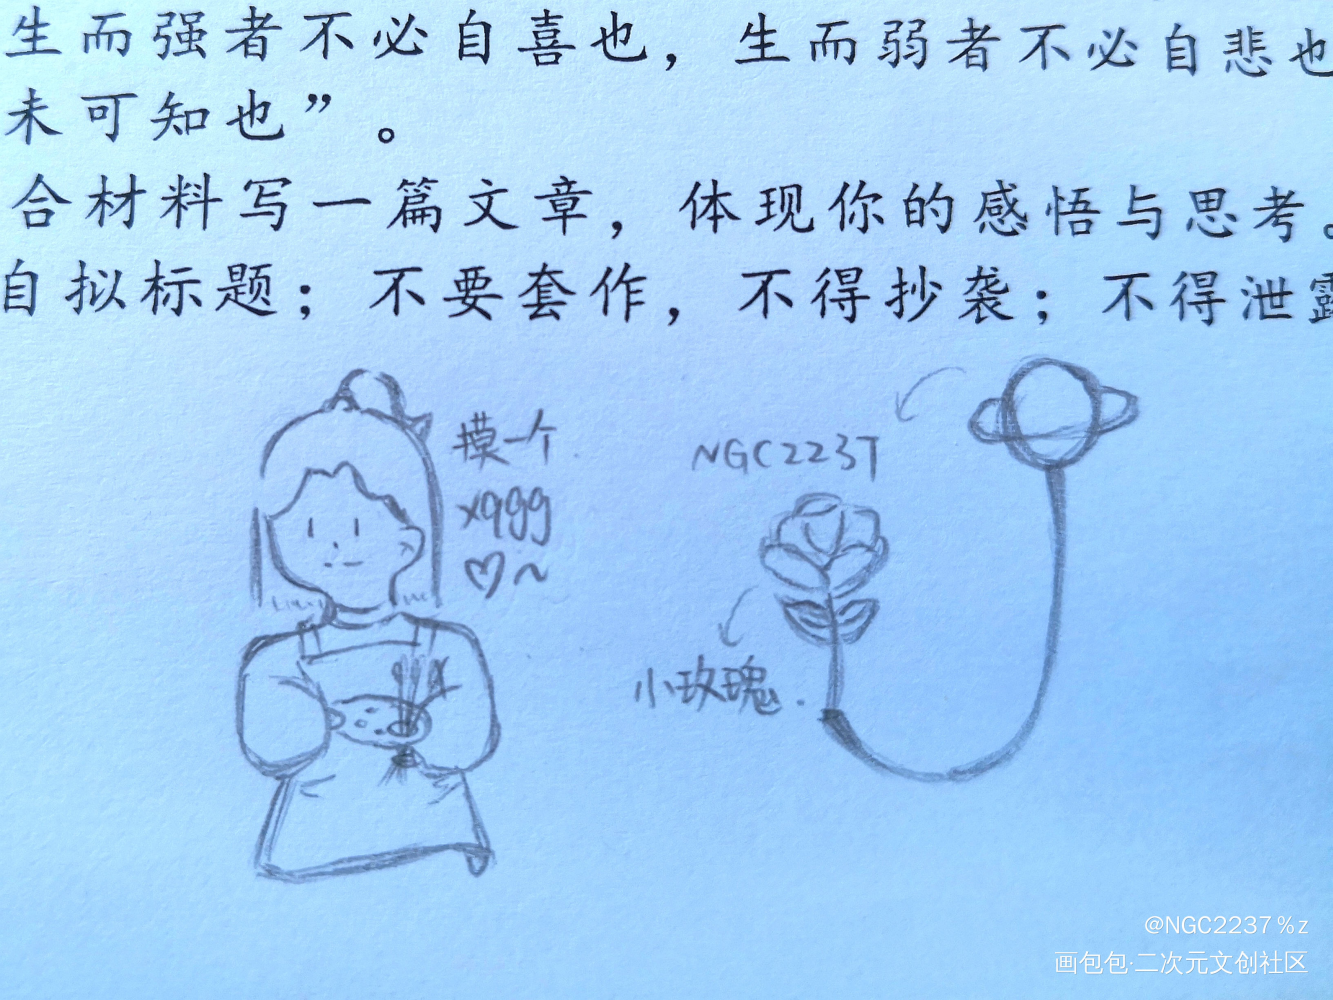 生而强者不必自喜也，生而弱者不必自悲也
未可知也”。
合材料写一篇文章，体现你的感悟与思考。
自拟标题；不要套作，不得抄袭；不得泄露
摸一个
xqgg
♡~
NGC2237
小玫瑰.
@NGC2237%z
画包包·二次元文创社区